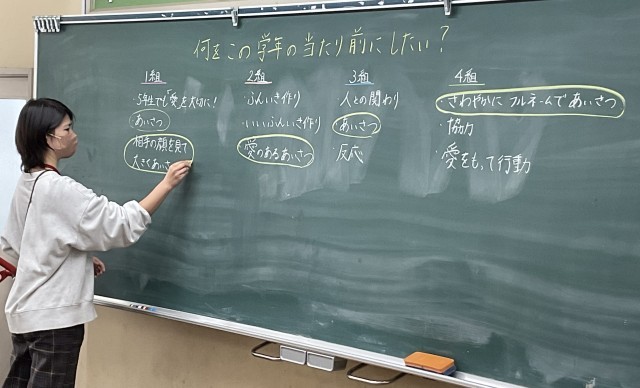 何をこの学年の当たり前にしたい?
1組
・5年生でも「愛」を大切に!
・あいさつ
・相手の顔を見て
大きくあいさ
2組
・ふんいき作り
・いいふんいき作り
・愛のあるあいさつ
3組
・人との関わり
・あいさつ
・反応
4組
・さわやかに フルネームで あいさつ
・協力
・愛をもって行動